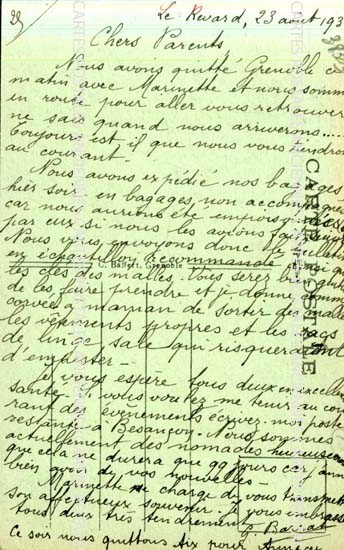 Le Revard, 23 août 193
Chers Parents,
Nous avons quitté Grenoble ce
matin avec Marinette et nous somm
en route pour aller vous retrouver
ne sais quand nous arriverons.....
toujours est-il que nous vous tiendron
au courant.
Nous avons expédié nos bagages
hier soir en bagages non accompagnés
car nous aurions été
par eux si nous les avions fait
Nous vous envoyons donc le bulletin
en échantillon recommandé
les clés des malles. Vous serez
de les faire prendre et je donne comme
corvée à maman de sortir des malles
les vêtements propres et les sacs
de linge sale qui risqueraient
d'empester.
Je vous espère tous deux en excellente
santé. Si vous voulez me tenir au cou
rant des évènements écrivez-moi poste
restante à Besançon. Nous sommes
actuellement des nomades heureusement
que cela ne durera que qq jours car j'aime
bien avoir de vos nouvelles.
Marinette me charge de vous transmettre
son affectueux souvenir. Je vous embrasse
tous deux très tendrement
Ce soir nous quittons Aix pour
CARTE POSTALE
C. Basset, Grenoble